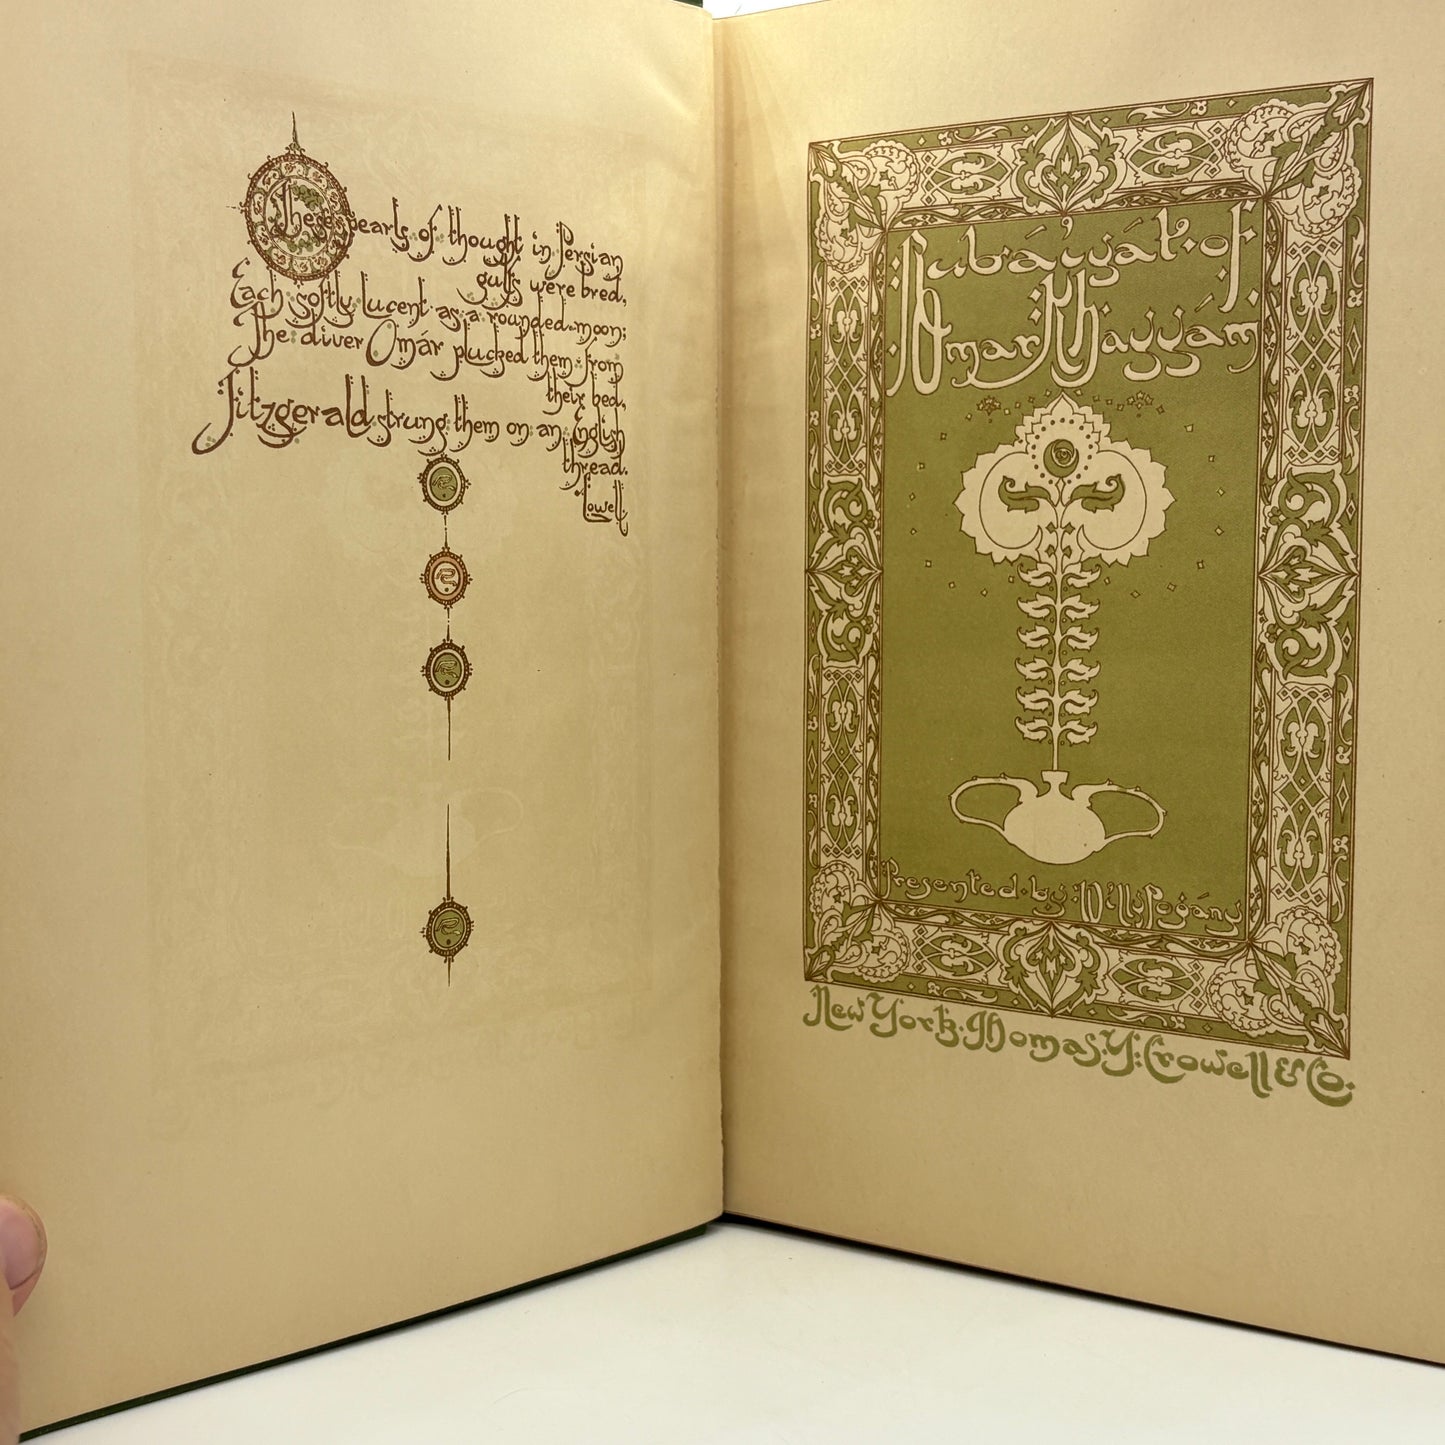 These pearls of thought in Persian
gulfs were bred,
Each softly lucent as a rounded moon;
The diver Omár plucked them from
their bed,
Fitzgerald strung them on an English
thread.
Lowell.
Rubá'iyát of
Omar Khayyám
Presented by Willy Pogány
New York. Thomas. Y. Crowell & Co.